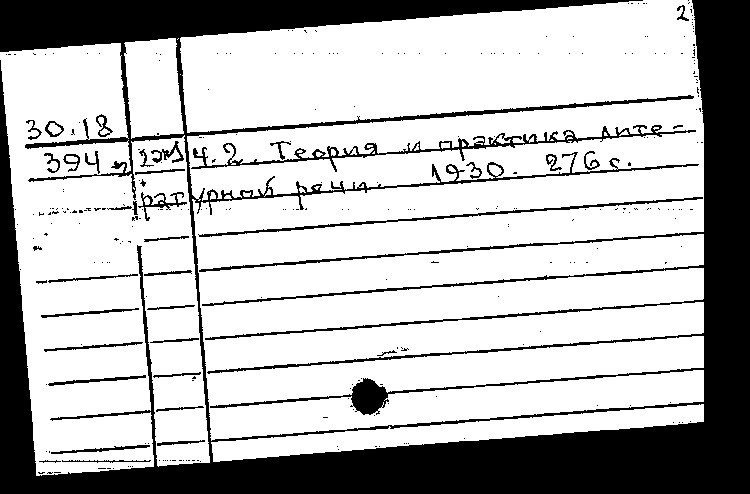 2
30.18
394 2экз Ч.2. Теория и практика лите-
ратурной речи. 1930. 276 с.